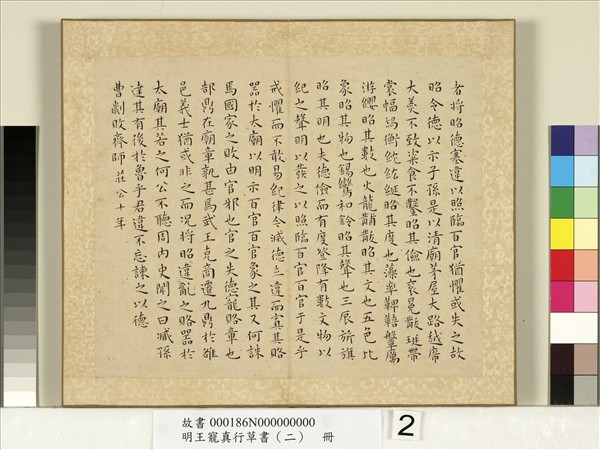 者將昭德塞違以照臨百官猶懼或失之故
昭令德以示子孫是以清廟茅屋大路越席
大羹不致粢食不鑿昭其儉也袞冕黻珽帶
裳幅舄衡紞紘綖昭其度也藻率鞞鞛鞶厲
游纓昭其數也火龍黼黻昭其文也五色比
象昭其物也鍚鸞和鈴昭其聲也三辰旂旗
昭其明也夫德儉而有度登降有數文物以
紀之聲明以發之以照臨百官百官于是乎
戒懼而不敢易紀律今滅德立違而寘其賂
器於太廟以明示百官百官象之其又何誅
焉國家之敗由官邪也官之失德寵賂章也
郜鼎在廟章孰甚焉武王克商遷九鼎於雒
邑義士猶或非之而況將昭違亂之賂器於
太廟其若之何公不聽周內史聞之曰臧孫
達其有後於魯乎君違不忘諫之以德
曹劌敗齊師 莊公十年
故書 000186N000000000
明王寵真行草書（二） 冊
2